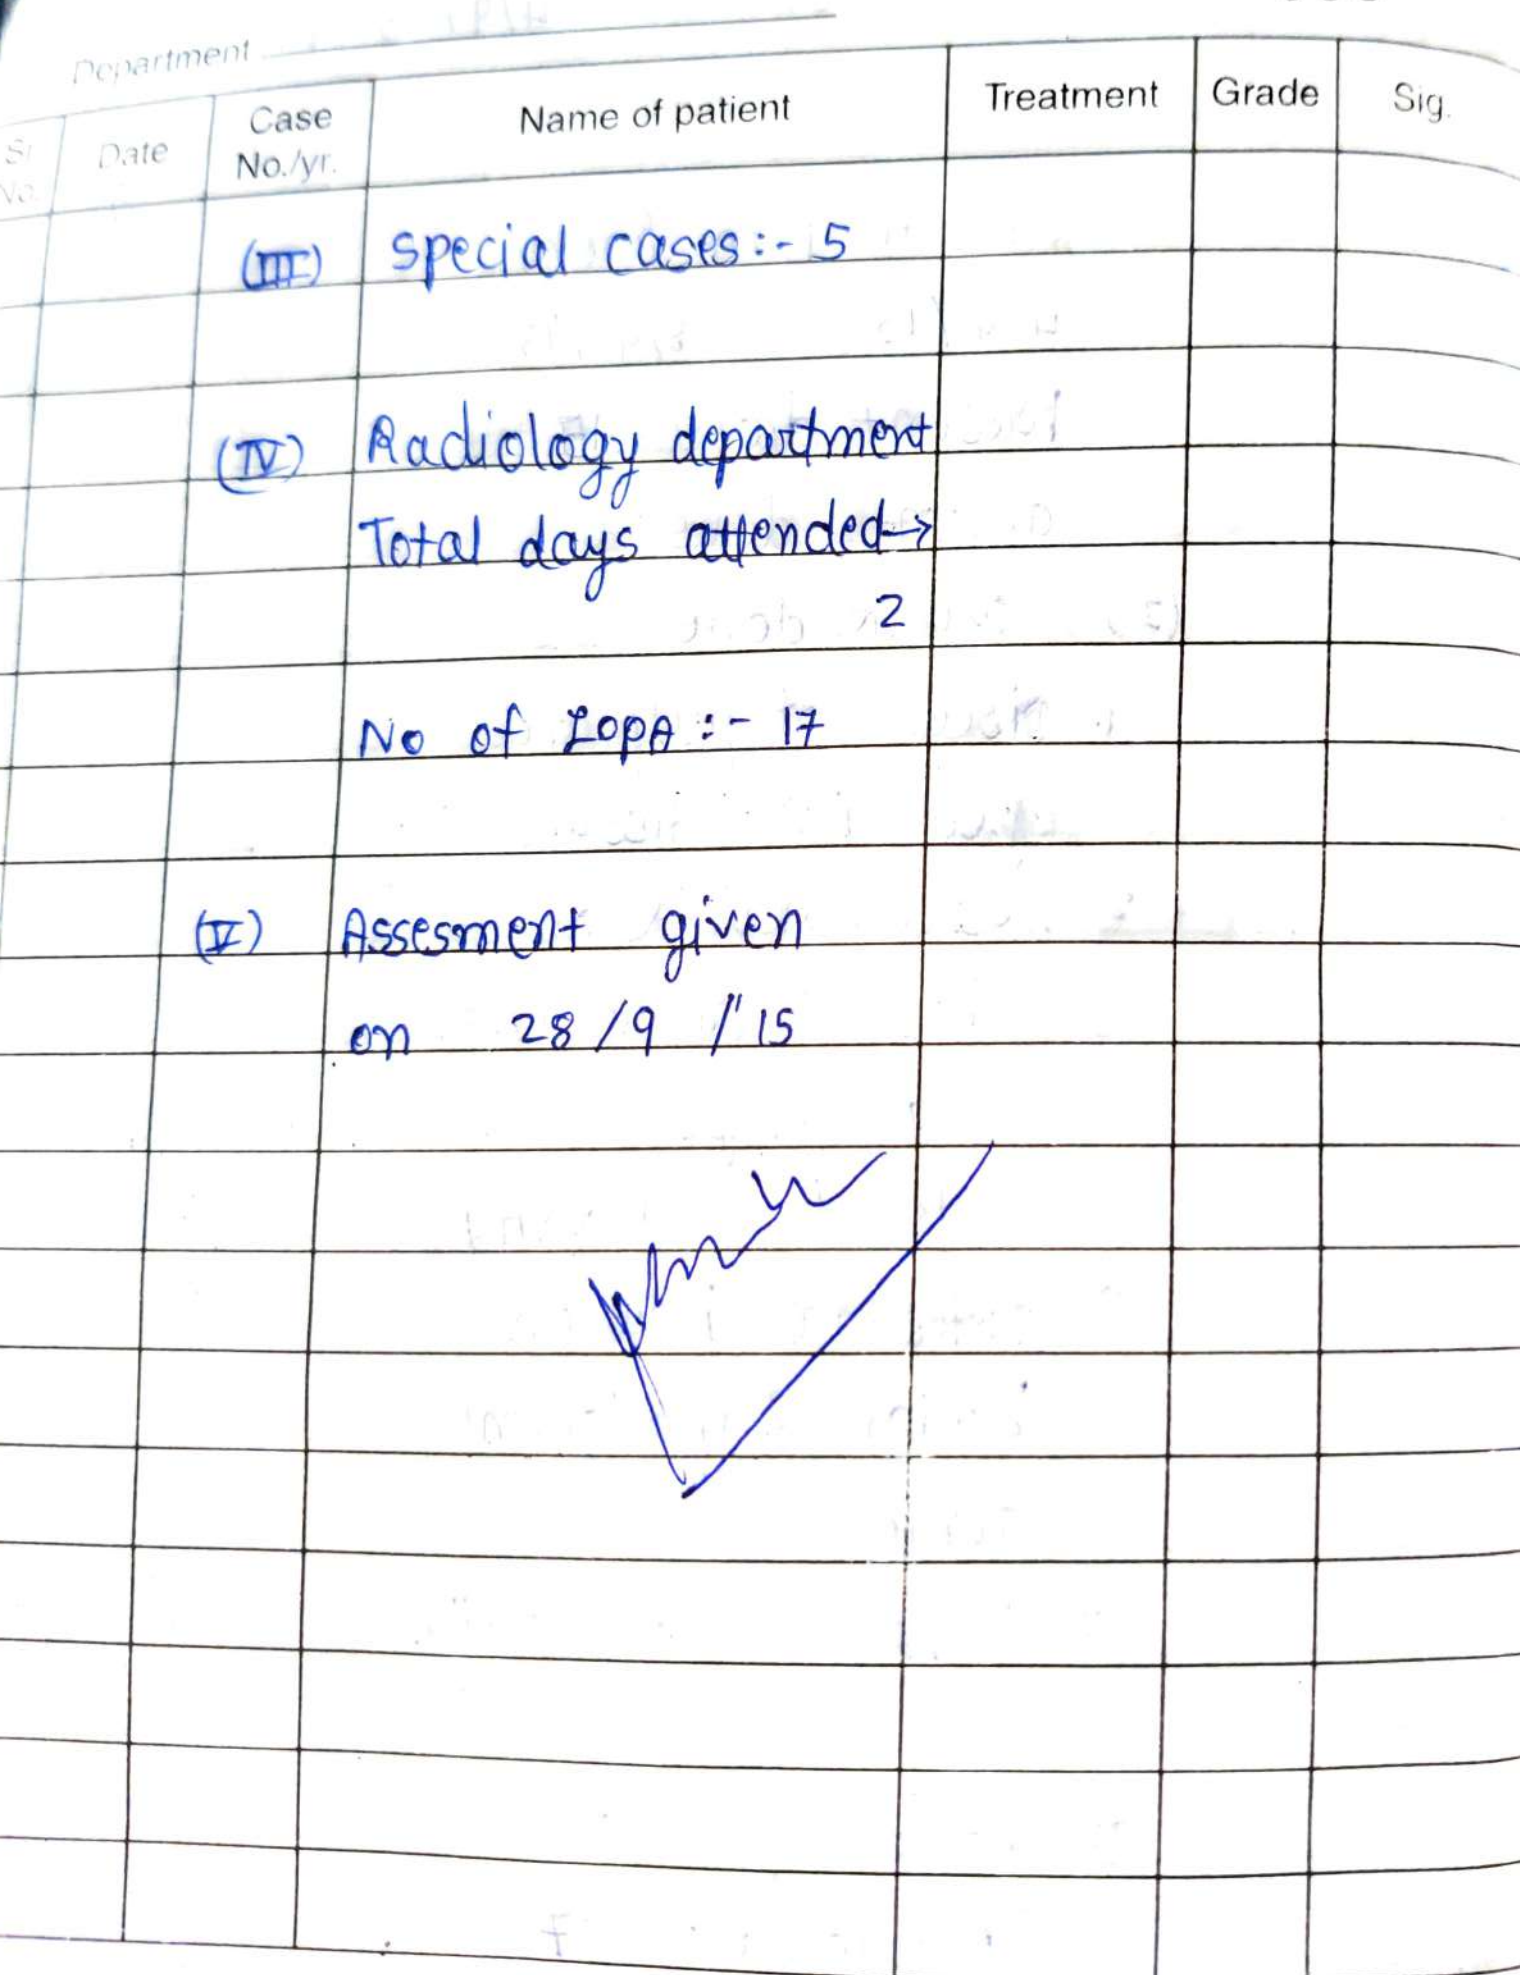 Department
Sr No. Date Case No./yr. Name of patient Treatment Grade Sig.
(III) special cases:- 5
(IV) Radiology department
Total days attended→
2
No of IOPA :- 17
(V) Assesment given
on 28/9/'15